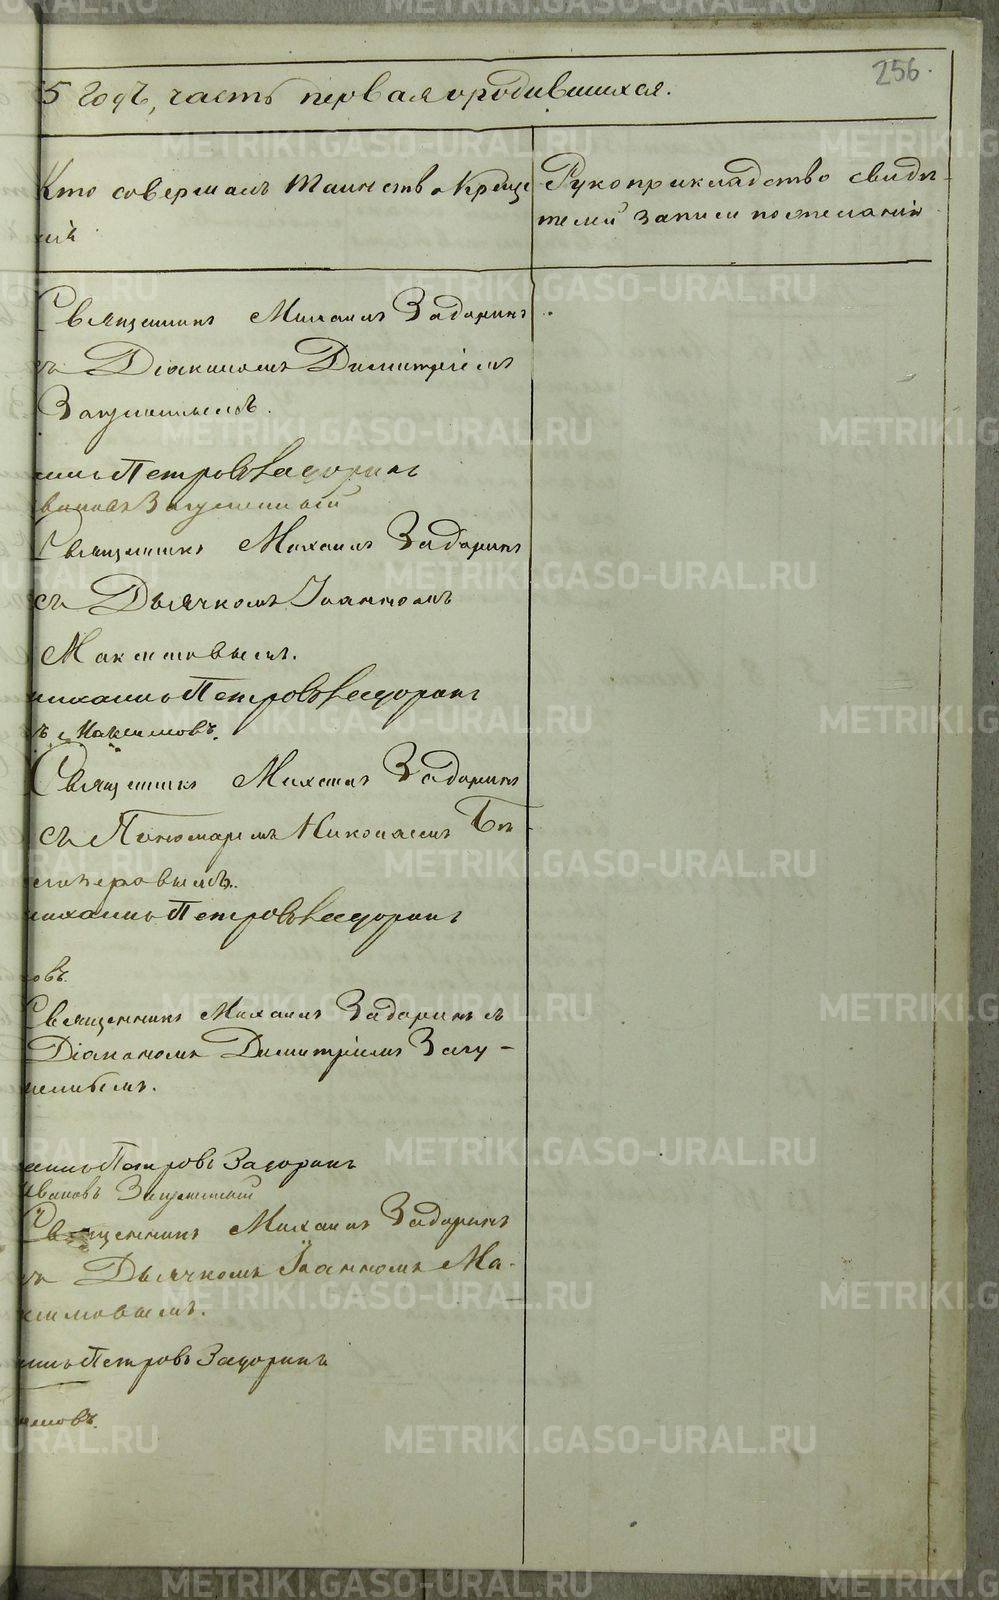 256.
5 годъ, часть первая о родившихся.
Кто совершалъ таинство Креще
нія
Рукоприкладство свидѣ-
телей записи по желанію
Священникъ Михаилъ Задоринъ
съ Діакономъ Димитріемъ
Загуменнымъ.
Петровъ Задоринъ
вановъ Загуменный
Священникъ Михаилъ Задоринъ
съ Дьячкомъ Іоанномъ
Максимовымъ.
михаилъ Петровъ Задоринъ
ъ Максимовъ.
Священникъ Михаилъ Задоринъ
съ Пономаремъ Николаемъ
михаилъ Петровъ Задоринъ
овъ.
Священникъ Михаилъ Задоринъ съ
Діакономъ Димитріемъ Загу-
меннымъ.
Петровъ Задоринъ
Ивановъ Загуменный
Священникъ Михаилъ Задоринъ
съ Дьячкомъ Іоанномъ Ма-
ксимовымъ.
Петровъ Задоринъ
имовъ.
METRIKI.GASO-URAL.RU